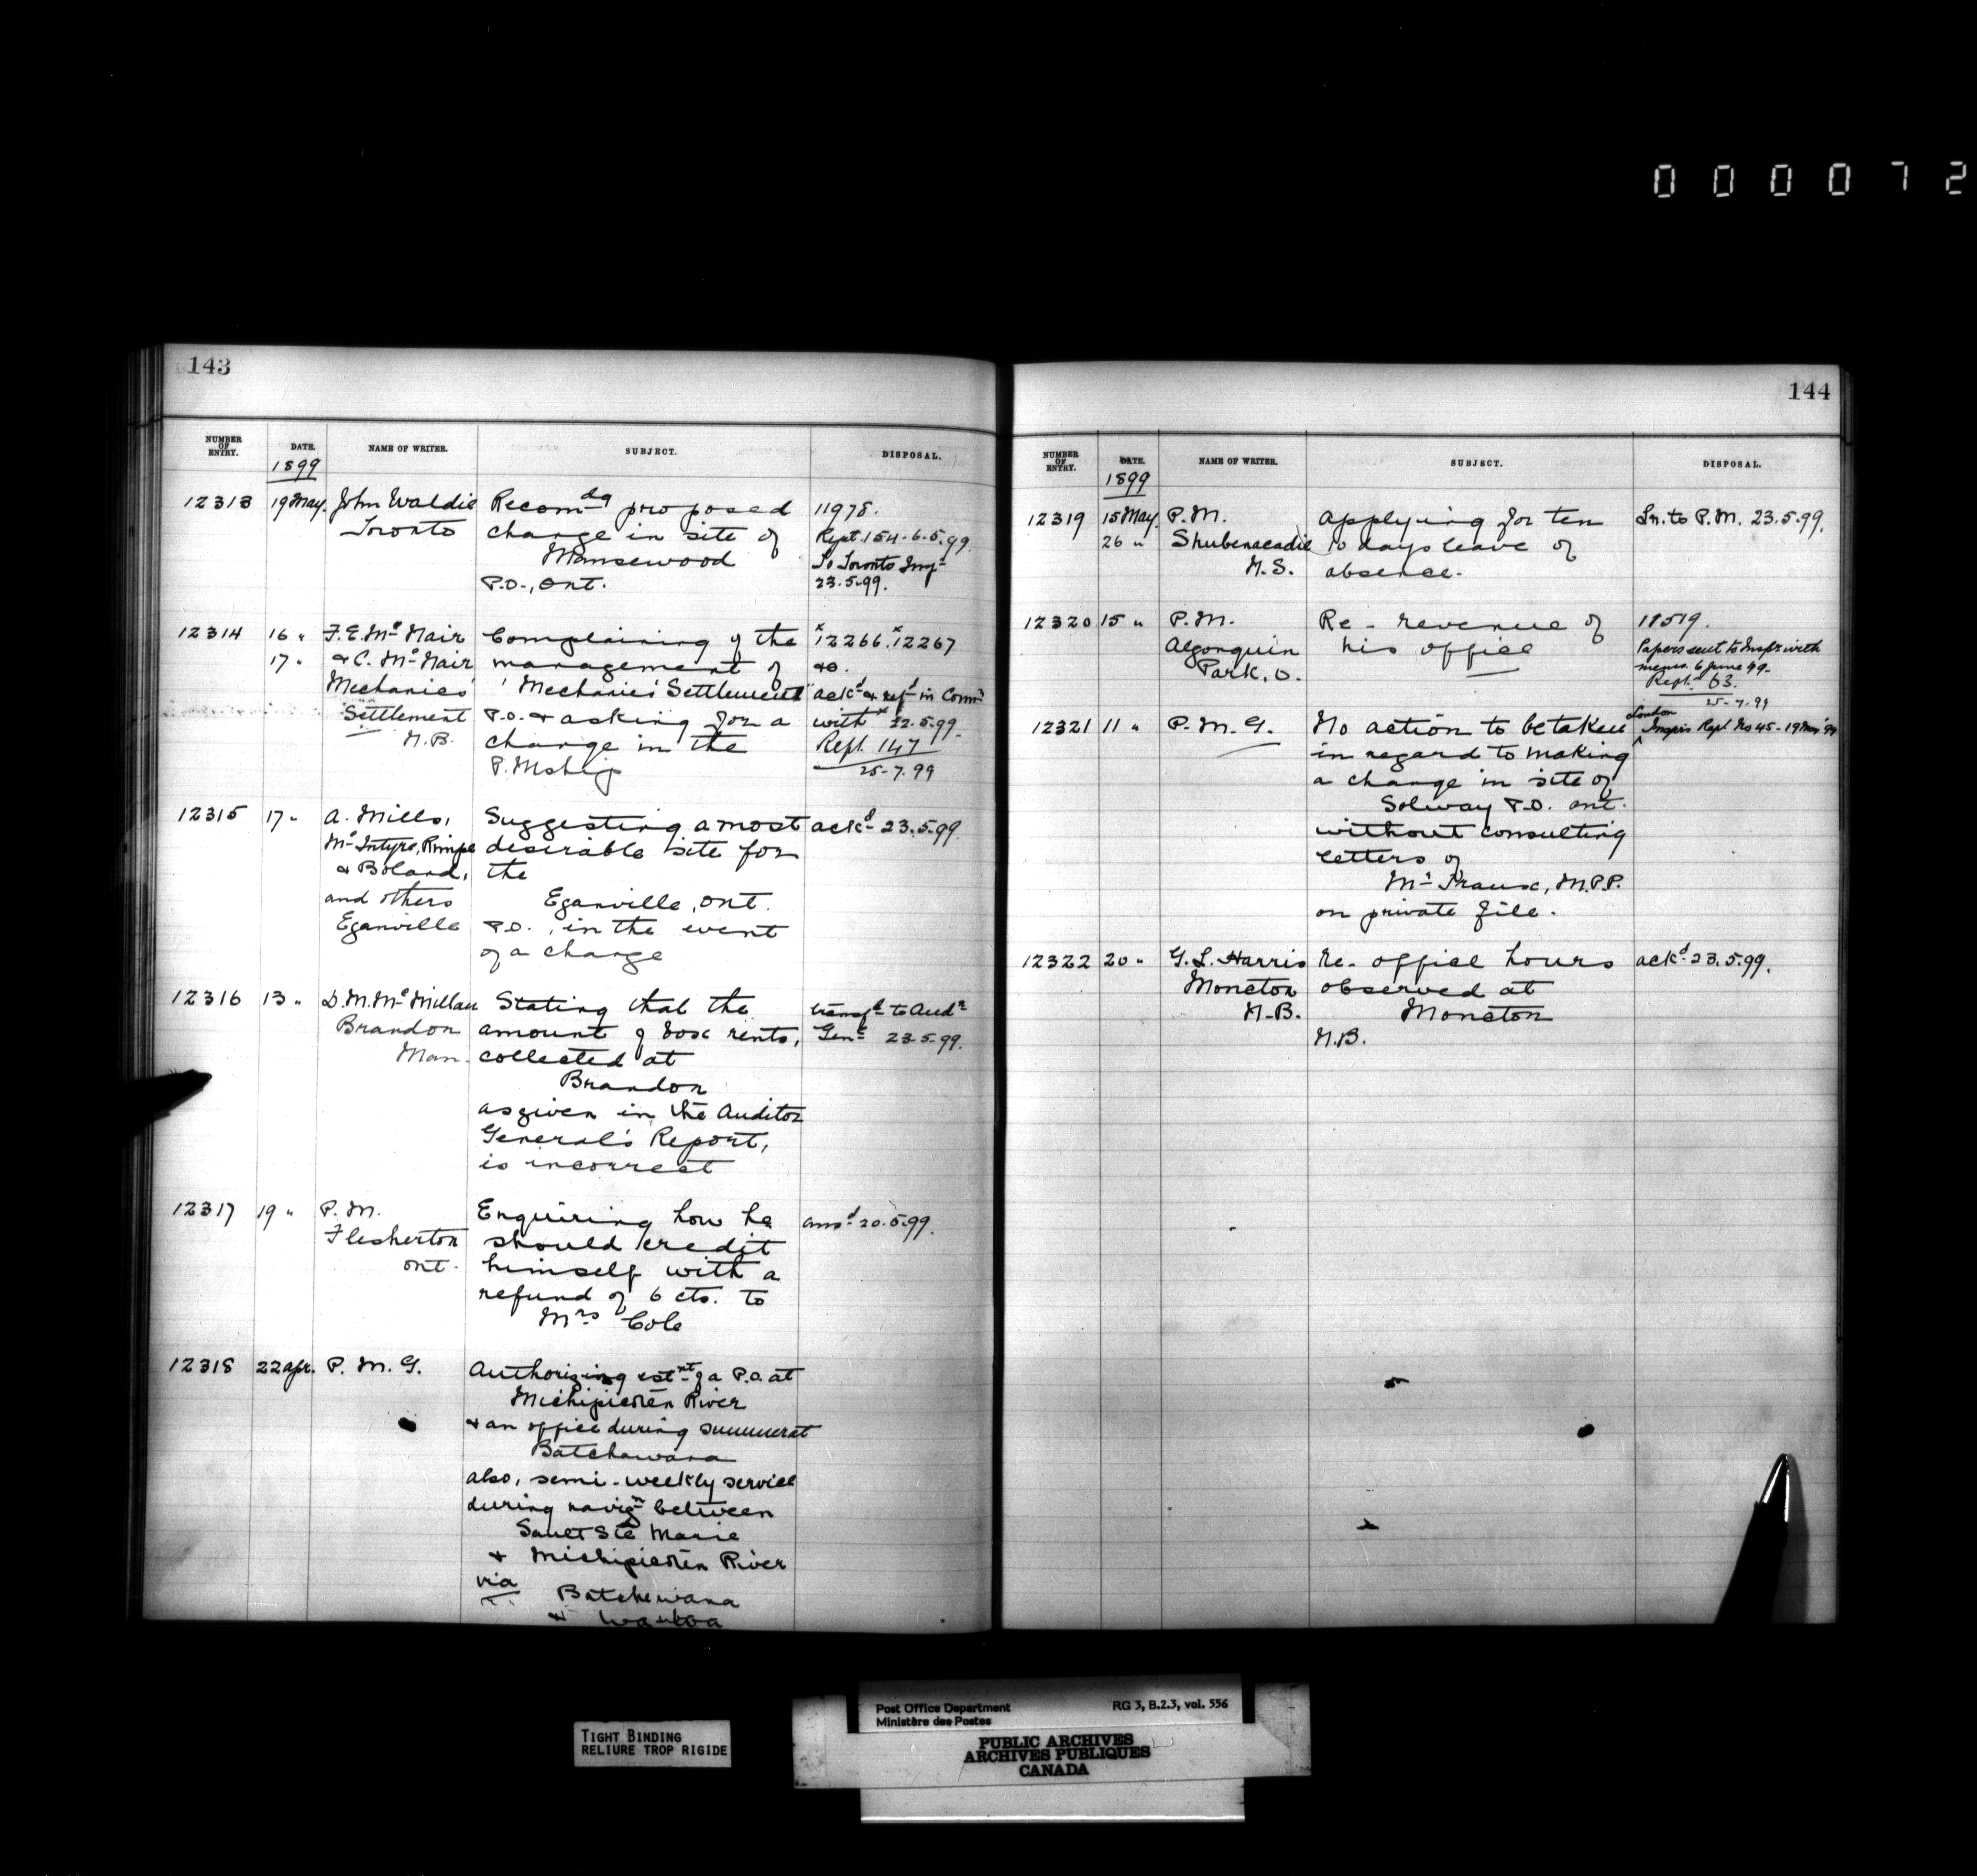 000072
143
NUMBER OF ENTRY. DATE. NAME OF WRITER. SUBJECT. DISPOSAL.
1899
12313 19 May. John Waldie Recomdg proposed 11978.
Toronto change in site of Rept. 154-6.5.99
Mansewood To Toronto Insp
P.O., Ont. 23.5.99.
12314 16 " F. E. McNair Complaining of the x12266. x12267
17 " & C. McNair management of
Mechanics' "Mechanics' Settlement" ackd & refd in Comn
Settlement P.O. & asking for a with x 22.5.99.
N.B. change in the Rept. 147
P.Mship 25-7.99
12315 17 " A. Mills, Suggesting a most ackd 23.5.99.
McIntyre, Rimpe desirable site for
& Boland, the
and others Eganville, Ont.
Eganville P.O., in the event
of a change
12316 13 " D. M. McMillan Stating that the transfd to Audr
Brandon amount of box rents, Genl 23.5.99.
Man. collected at
Brandon
as given in the Auditor
General's Report,
is incorrect
12317 19 " P. M. Enquiring how he ansd 20.5.99.
Flesherton should credit
Ont. himself with a
refund of 6 cts. to
Mrs Cole
12318 22 Apr. P. M. G. Authorizing estnt of a P.O. at
Michipicoten River
& an office during summer at
Batchawana
also, semi-weekly service
during navign between
Sault Ste Marie
& Michipicoten River
via Batchewana
&
144
NUMBER OF ENTRY. DATE. NAME OF WRITER. SUBJECT. DISPOSAL.
1899
12319 15 May P.M. Applying for ten Ln. to P.M. 23.5.99.
26 " Shubenacadie 10 days leave of
N.S. absence.
12320 15 " P.M. Re - revenue of
Algonquin his office Papers sent to Inspr with
Park, O. memo. 6 June 99-
Rept. 63.
25-7.99
12321 11 " P. M. G. No action to be taken London Insprs Rept No 45-19 May 99
in regard to making
a change in site of
Solway P.O. Ont.
without consulting
letters of
Mr Truax, M.P.P.
on private file.
12322 20 " G. L. Harris Re- office hours ackd 23.5.99.
Moncton observed at
N.B. Moncton
N.B.
TIGHT BINDING
RELIURE TROP RIGIDE
Post Office Department RG 3, B.2.3, vol. 556
Ministère des Postes
PUBLIC ARCHIVES
ARCHIVES PUBLIQUES
CANADA